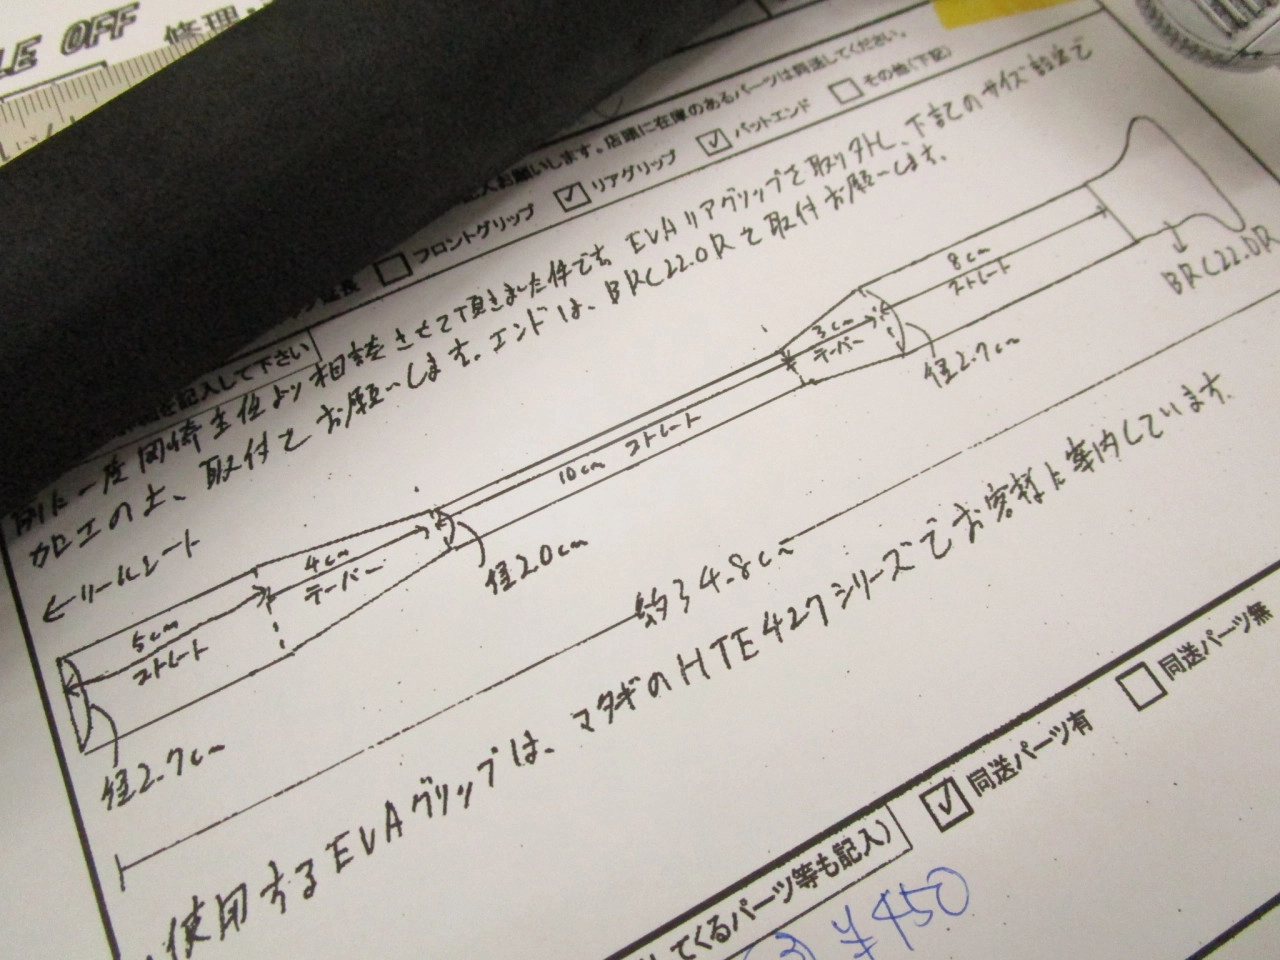 LE OFF 修理
記入お願いします。店頭に在庫のあるパーツは同送してください。
フロントグリップ リアグリップ バットエンド その他(下記)
を記入して下さい
別に一度 より相談させて頂きました件です。EVAリアグリップを取り外し、下記のサイズ設定で
加工の上、取付でお願いします。エンドは、BRC22.0Rで取付お願いします。
←リールシート
5cm
ストレート
4cm
テーパー
10cm ストレート
3cm
テーパー
8cm
ストレート
径2.7cm
径2.0cm
径2.7cm
BRC22.0R
約34.8cm
使用するEVAグリップは、マタギのHTE427シリーズでお客様に案内しています。
同送パーツ有 同送パーツ無
してくるパーツ等も記入)
¥450